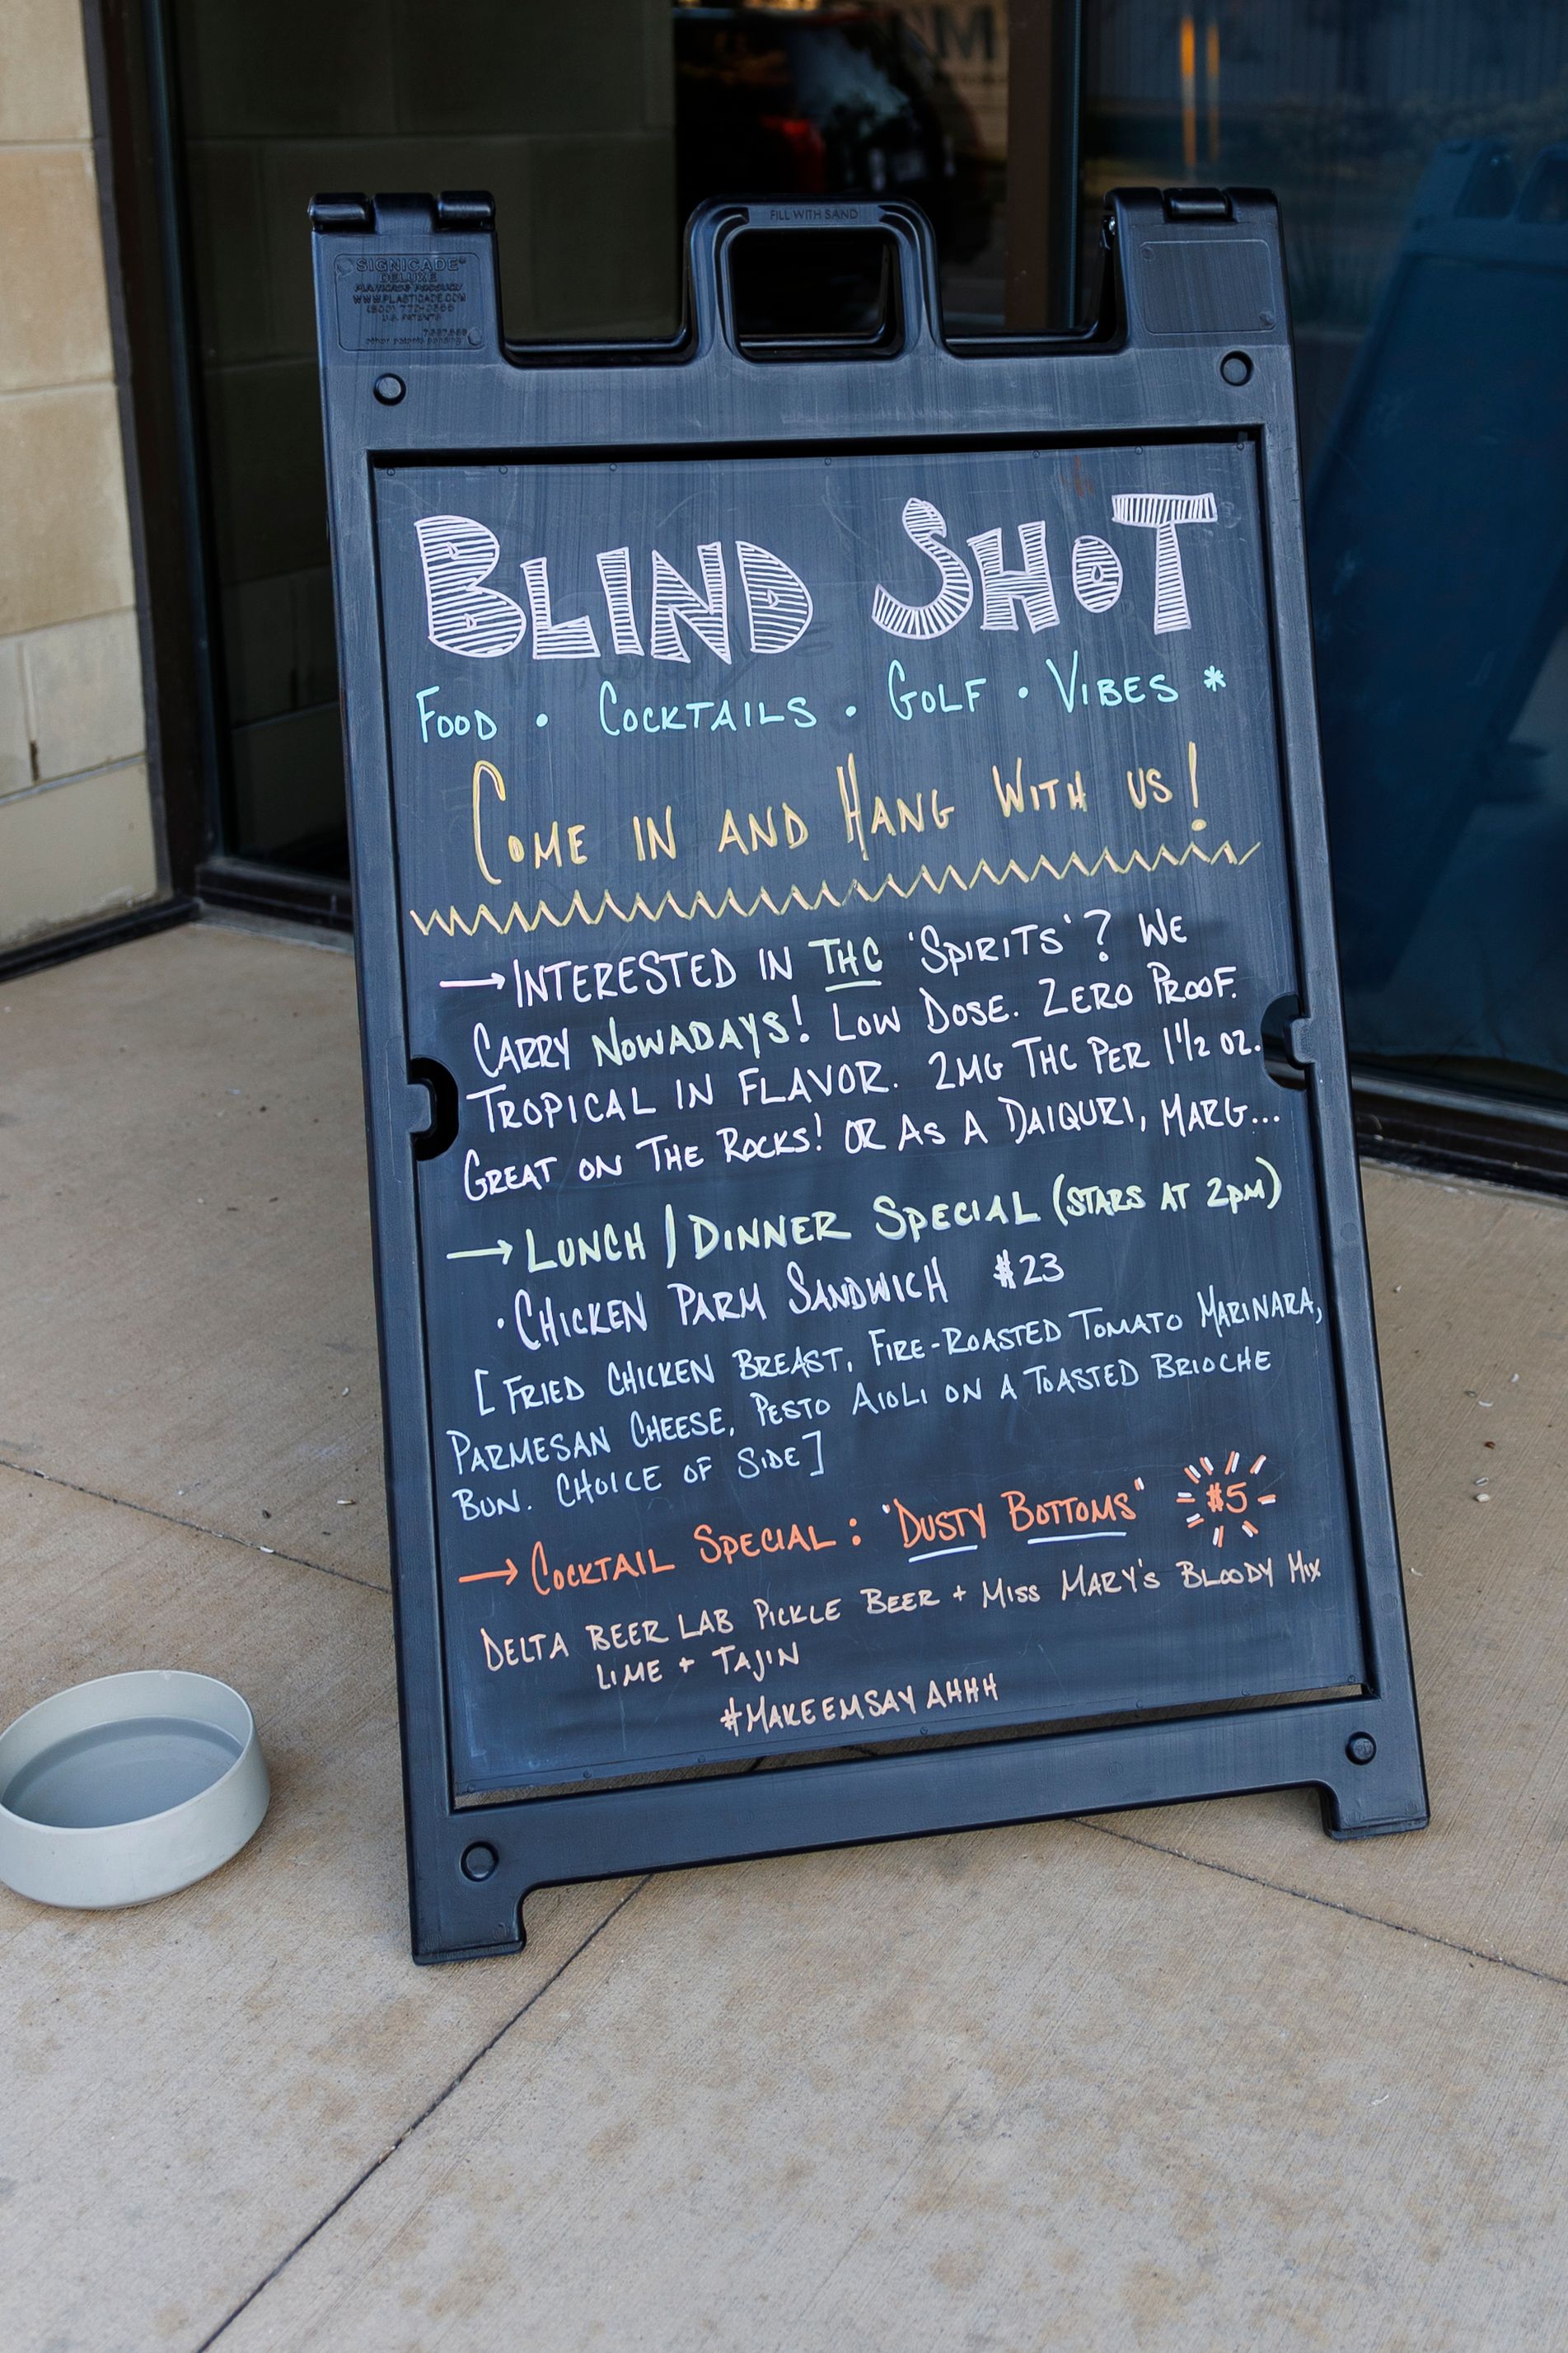 FILL WITH SAND
SIGNICADE®
DELUXE
PLASTICADE PRODUCTS
WWW.PLASTICADE.COM
U.S. PATENTS
other patents pending
BLIND SHOT
FOOD • COCKTAILS • GOLF • VIBES *
COME IN AND HANG WITH US!
→ INTERESTED IN THC 'SPIRITS'? WE
CARRY NOWADAYS! LOW DOSE. ZERO PROOF.
TROPICAL IN FLAVOR. 2MG THC PER 1 1/2 OZ.
GREAT ON THE ROCKS! OR AS A DAIQURI, MARG...
→ LUNCH / DINNER SPECIAL (STARS AT 2PM)
• CHICKEN PARM SANDWICH $23
[FRIED CHICKEN BREAST, FIRE-ROASTED TOMATO MARINARA,
PARMESAN CHEESE, PESTO AIOLI ON A TOASTED BRIOCHE
BUN. CHOICE OF SIDE]
→ COCKTAIL SPECIAL: "DUSTY BOTTOMS" $5
DELTA BEER LAB PICKLE BEER + MISS MARY'S BLOODY MIX
LIME + TAJIN
#MAKEEMSAYAHHH